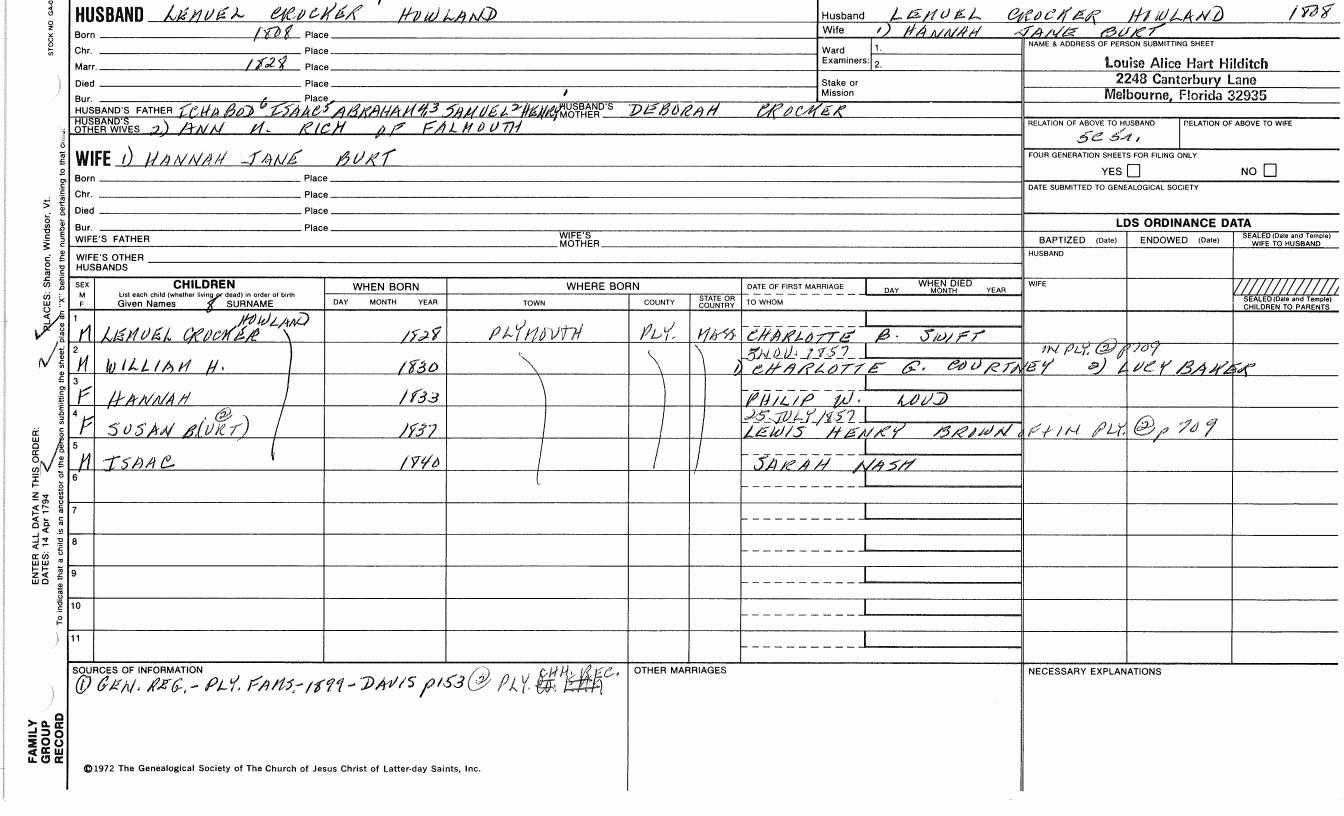 HUSBAND LEMUEL CROCKER HOWLAND
Born 1808 Place
Chr. Place
Marr. 1828 Place
Died Place
Bur. Place
HUSBAND'S FATHER ICHABOD 6 ISAAC 5 ABRAHAM 4,3 SAMUEL 2 HENRY HUSBAND'S MOTHER DEBORAH CROCKER
HUSBAND'S OTHER WIVES 2) ANN M. RICH OF FALMOUTH
WIFE 1) HANNAH JANE BURT
Born Place
Chr. Place
Died Place
Bur. Place
WIFE'S FATHER WIFE'S MOTHER
WIFE'S OTHER HUSBANDS
Husband LEMUEL CROCKER HOWLAND 1808
Wife 1) HANNAH JANE BURT
Ward Examiners: 1. 2.
Stake or Mission
NAME & ADDRESS OF PERSON SUBMITTING SHEET
Louise Alice Hart Hilditch
2248 Canterbury Lane
Melbourne, Florida 32935
RELATION OF ABOVE TO HUSBAND RELATION OF ABOVE TO WIFE
FOUR GENERATION SHEETS FOR FILING ONLY
YES NO
DATE SUBMITTED TO GENEALOGICAL SOCIETY
LDS ORDINANCE DATA
BAPTIZED (Date) ENDOWED (Date) SEALED (Date and Temple) WIFE TO HUSBAND
HUSBAND
WIFE
SEALED (Date and Temple) CHILDREN TO PARENTS
SEX M F CHILDREN WHEN BORN WHERE BORN DATE OF FIRST MARRIAGE WHEN DIED
List each child (whether living or dead) in order of birth
Given Names SURNAME DAY MONTH YEAR TOWN COUNTY STATE OR COUNTRY TO WHOM DAY MONTH YEAR
HOWLAND
1 M LEMUEL CROCKER 1828 PLYMOUTH PLY. MASS CHARLOTTE B. SWIFT
3 NOV. 1857 IN PLY. ② p 709
2 M WILLIAM H. 1830 1) CHARLOTTE G. COURTNEY 2) LUCY BAKER
3 F HANNAH 1833 PHILIP W. LOUD
25 JULY 1857
4 F SUSAN B(URT) ② 1837 LEWIS HENRY BROWN OF + IN PLY. ② p 709
5 M ISAAC 1840 SARAH NASH
6
7
8
9
10
11
SOURCES OF INFORMATION
① GEN. REG. - PLY. FAMS. - 1899 - DAVIS p153 ② PLY. CHH. REC.
OTHER MARRIAGES
NECESSARY EXPLANATIONS
©1972 The Genealogical Society of The Church of Jesus Christ of Latter-day Saints, Inc.
STOCK NO.
PLACES: Sharon, Windsor, Vt.
ENTER ALL DATA IN THIS ORDER:
DATES: 14 Apr 1794
To indicate that a child is an ancestor of the person submitting the sheet, place an "X" behind the number pertaining to that
FAMILY
GROUP
RECORD